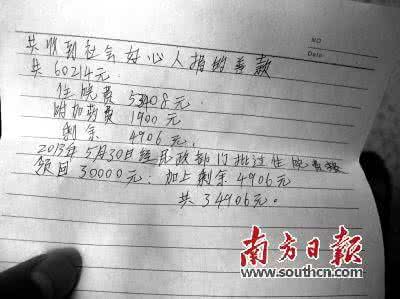 NO
Date
共收到社会好心人捐的善款
共60214元.
住院费53408元
附加药费1900元
剩余4906元.
2013年5月30日经民政部门批过住院费报
领回30000元.加上剩余4906元
共34906元.
南方日报
www.southcn.com